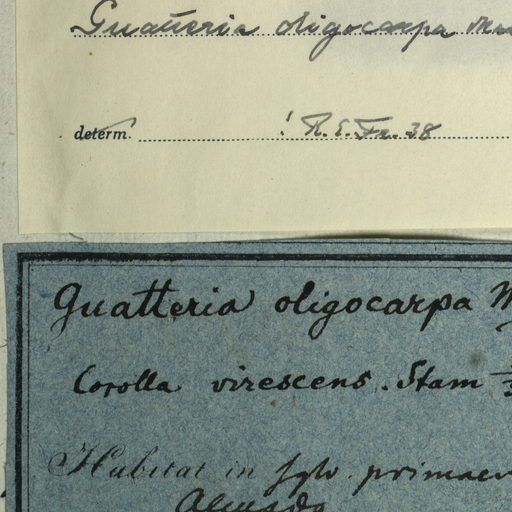 Guatteria oligocarpa Mar
determ. ! R. E. Fr. 38
Guatteria oligocarpa M
Corolla virescens. Stam
Habitat in sylv. primaev
Almada